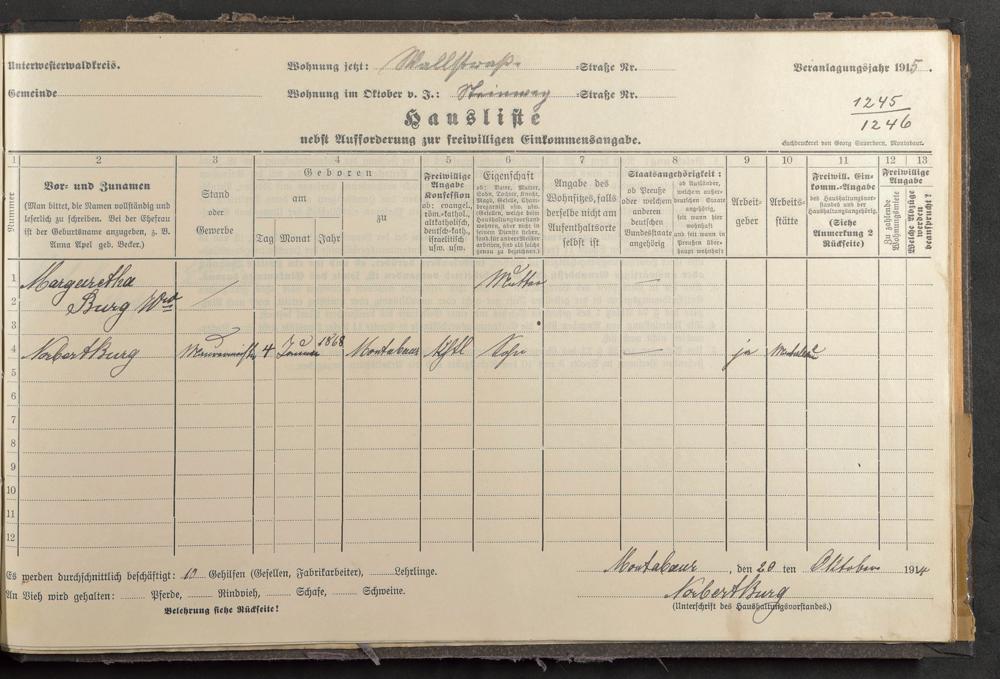 Unterwesterwaldkreis.
Wohnung jetzt: Wallstraße =Straße Nr.
Veranlagungsjahr 1915.
Gemeinde
Wohnung im Oktober v. J.: Steinweg =Straße Nr.
1245
1246
Hausliste
nebst Aufforderung zur freiwilligen Einkommensangabe.
Buchdruckerei von Georg Sauerborn, Montabaur.
1 2 3 4 5 6 7 8 9 10 11 12 13
Nummer
Vor- und Zunamen
(Man bittet, die Namen vollständig und
leserlich zu schreiben. Bei der Ehefrau
ist der Geburtsname anzugeben, z. B.
Anna Apel geb. Becker.)
Stand
oder
Gewerbe
Geboren
am
zu
Tag Monat Jahr
Freiwillige
Angabe
Konfession
ob: evangel.,
röm.-kathol.,
altkatholisch,
deutsch-kath.,
israelitisch
usw. usw.
Eigenschaft
ob: Vater, Mutter,
Sohn, Tochter, Knecht,
Magd, Geselle, Cham-
bregarnist usw. usw.
(Gesellen, welche beim
Haushaltungsvorstand
wohnen, aber nicht in
seinem Dienste stehen,
sond. für andere Meister
arbeiten, sind als solche
genau zu bezeichnen.)
Angabe des
Wohnsitzes, falls
derselbe nicht am
Aufenthaltsorte
selbst ist
Staatsangehörigkeit:
ob Preuße
oder welchem
anderen
deutschen
Bundesstaate
angehörig
ob Ausländer,
welchem außer-
deutschen Staate
angehörig,
seit wann hier
wohnhaft
und seit wann in
Preußen über-
haupt wohnhaft
Arbeit-
geber
Arbeits-
stätte
Freiwill. Ein-
komm.-Angabe
des Haushaltungsvor-
standes und der
Haushaltungsangehörig.
(Siehe
Anmerkung 2
Rückseite)
Freiwillige
Angabe
Zu zahlende
Wohnungsmiete
Welche Abzüge
werden
beansprucht?
1 Margaretha Mutter —
2 Burg Wwe
3
4 Norbert Burg 4 Januar 1868 Montabaur kthl Sohn — ja
5
6
7
8
9
10
11
12
Es werden durchschnittlich beschäftigt: 10 Gehilfen (Gesellen, Fabrikarbeiter), Lehrlinge.
Montabaur, den 20 ten Oktober 1914
An Vieh wird gehalten: Pferde, Rindvieh, Schafe, Schweine.
Norbert Burg
Belehrung siehe Rückseite!
(Unterschrift des Haushaltungsvorstandes.)